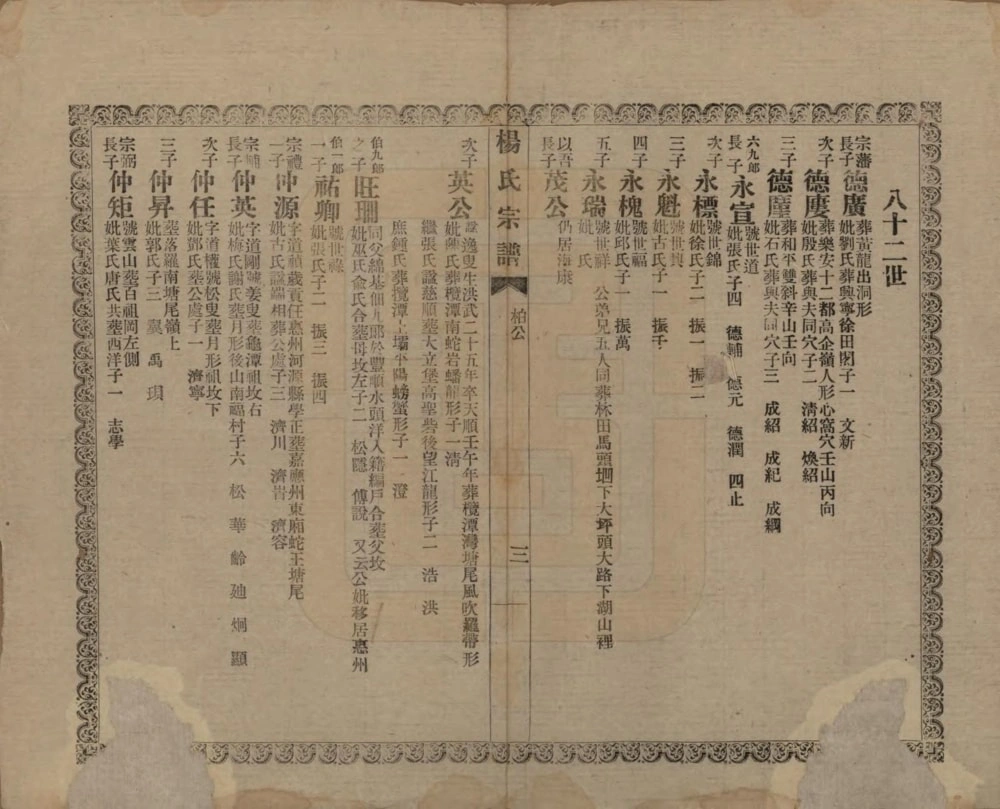 八十二世
宗藩長子 德廣 葬黃龍出洞形
妣劉氏葬興寧徐田閣子一 文新
次子 德慶 葬樂安十二都高企嶺人形心窩穴壬山丙向
妣殷氏葬與夫同穴子二 淸紹 煥紹
三子 德鏖 葬和平雙斜辛山壬向
妣石氏葬與夫同穴子三 成紹 成紀 成綱
六九郎長子 永宣 號世道
妣張氏子四 德輔 德元 德潤 四止
次子 永標 號世錦
妣徐氏子二 振一 振二
三子 永魁 號世興
妣古氏子一 振千
四子 永槐 號世福
妣邱氏子一 振萬
五子 永瑞 號世祥 公弟兄五人同葬林田馬頭堋下大坪頭大路下湖山裡
妣 氏
以吾長子 茂公 仍居海康
楊氏宗譜
柏公
三
次子 英公 諡逸叟生洪武二十五年卒天順壬午年葬欖潭灣塘尾風吹羅帶形
妣 氏葬欖潭南蛇岩蟠龍形子一 淸
繼張氏諡慈順葬大立堡高聖砦後望江龍形子二 浩 洪
庶鍾氏葬欖潭上壩平陽螃蟹形子一 澄
伯九郎之子 旺珊 同父綿基佃九郎於豐順水頭洋入籍編戶合葬父坟
妣巫氏俞氏合葬母坟左子二 松隱 傅說 又云公妣移居惠州
伯一郎一子 祐卿 號世祿
妣張氏子二 振三 振四
宗禮一子 仲源 字道禎歲貢任惠州河源縣學正葬嘉應州東廂蛇王塘尾
妣古氏諡端相葬公處子三 濟川 濟 濟容
宗補長子 仲英 字道剛號姜叟葬龜潭祖坟右
妣梅氏謝氏葬月形後山南福村子六 松 華 齡 廸 炯 顯
次子 仲任 字道權號松叟葬月形祖坟下
妣鄧氏葬公處子一 濟寧
三子 仲昇 葬落羅南塘尾嶺上
妣郭氏子三 襄 禹 琪
宗弼長子 仲矩 號雲山葬百祖岡左側
妣葉氏唐氏共葬西洋子一 志學